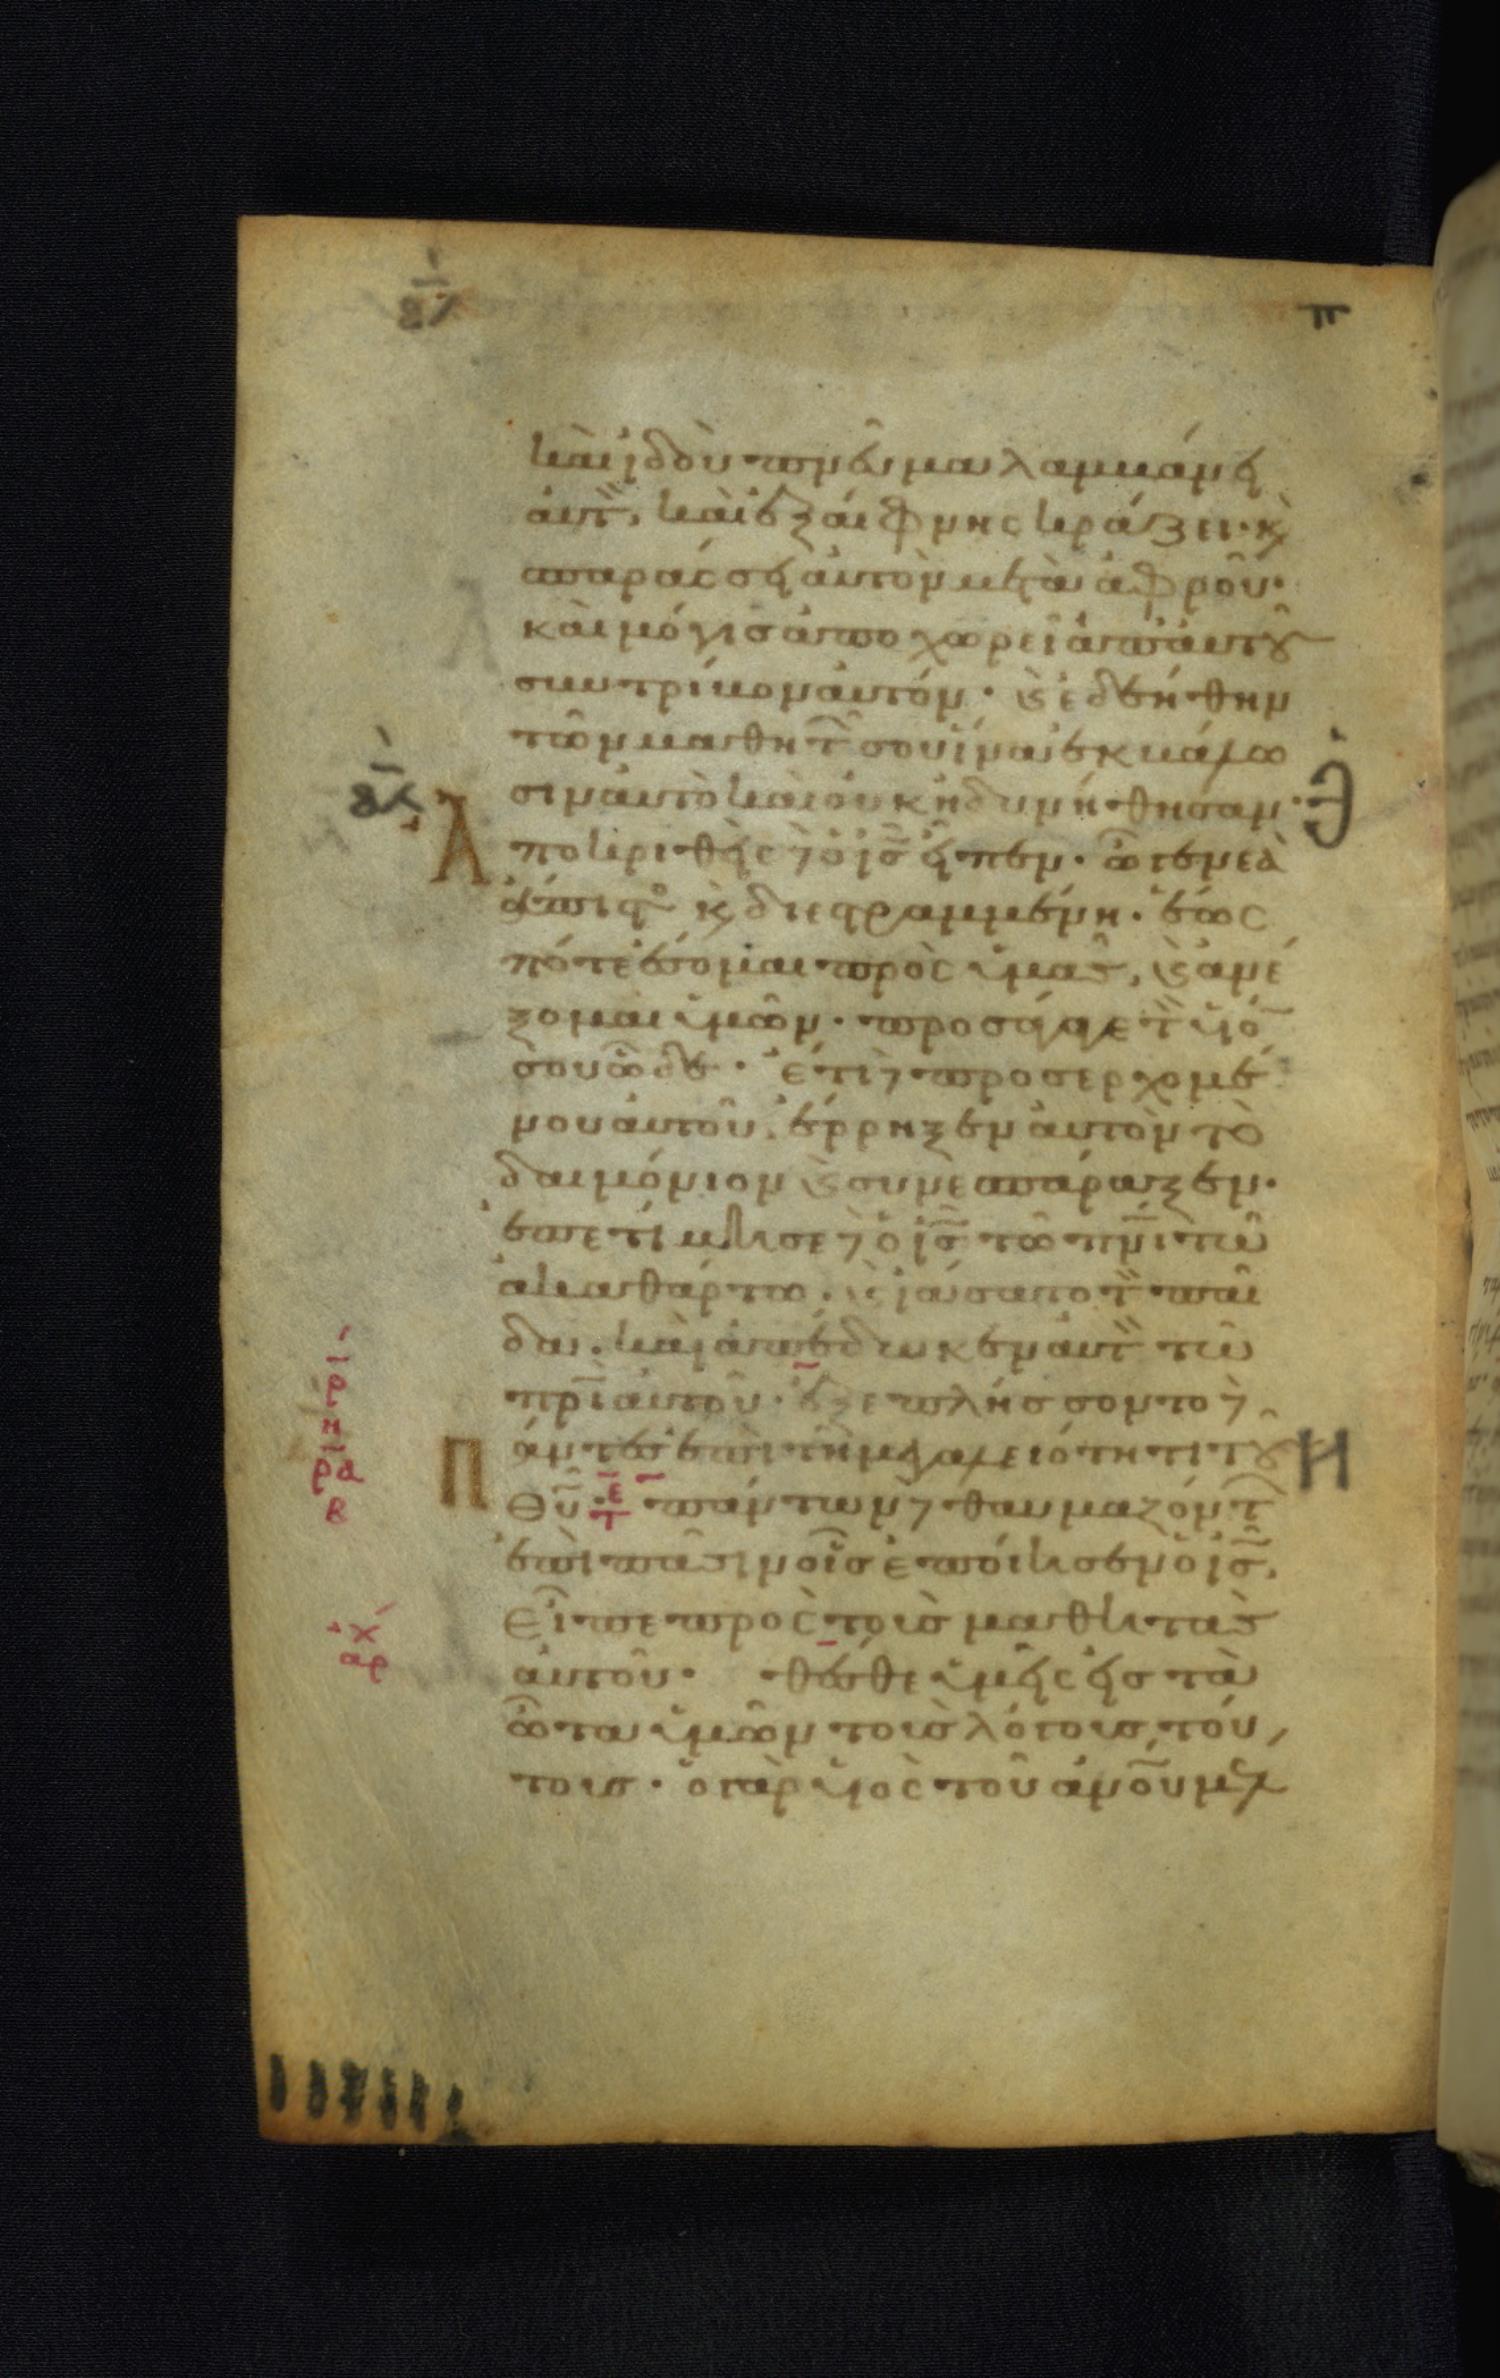 καὶ ἰδοὺ πνεῦμα λαμβάνει
αὐτ̈, καὶ ἐξαίφνης κράζει· κ̀
σπαράσσει αὐτὸν μετὰ ἀφροῦ·
καὶ μόγις ἀποχωρεῖ ἀπ' αὐτοῦ
συντρίβον αὐτόν· καὶ ἐδεήθην
τῶν μαθητ̑ σου ἵνα ἐκβάλω
σιν αὐτὸ καὶ οὐκ ἠδυνήθησαν·
Ἀποκριθεὶς δ ὁ ις̅ εἶπεν· ὦ γενεὰ
ἄπιστο κ̀ διεστραμμένη· ἕως
πότε ἔσομαι πρὸς ὑμᾶς, καὶ ἀνέ
ξομαι ὑμῶν· προσάγαγε τ̈ υἱό
σου ὧδε· ἔτι δ προσερχομέ
νου αὐτοῦ, ἔρρηξεν αὐτὸν τὸ
δαιμόνιον καὶ συνεσπάραξεν·
ἐπετίμησε δ ὁ ις̅ τῶ πνι̅ τῶ
ἀκαθάρτω· καὶ ἰάσατο τ̈ παῖ
δα· καὶ ἀπέδωκεν αὐτ̈ τῶ
πρι̅ αὐτοῦ· ἐξεπλήσσοντο δ
Πάντες ἐπὶ τῆ μεγαλειότητι τοῦ
θυ̅· πάντων δ θαυμαζόντ
ἐπὶ πᾶσιν οἷς ἐποίησεν ὁ ις̅,
εἶπε πρὸς τοὺς μαθητὰς
αὐτοῦ· θέσθε ὑμεῖς εἰς τὰ
ὦτα ὑμῶν τοὺς λόγους τού
τους· ὁ γὰρ υἱὸς τοῦ ἀνο̅υ μελ